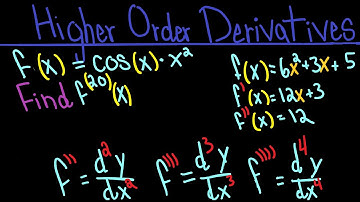 Higher Order Derivatives
f(x) = cos(x) · x²
Find f⁽²⁰⁾(x)
f(x) = 6x² + 3x + 5
f'(x) = 12x + 3
f''(x) = 12
f'' = d²y/dx² f''' = d³y/dx³ f'''' = d⁴y/dx⁴